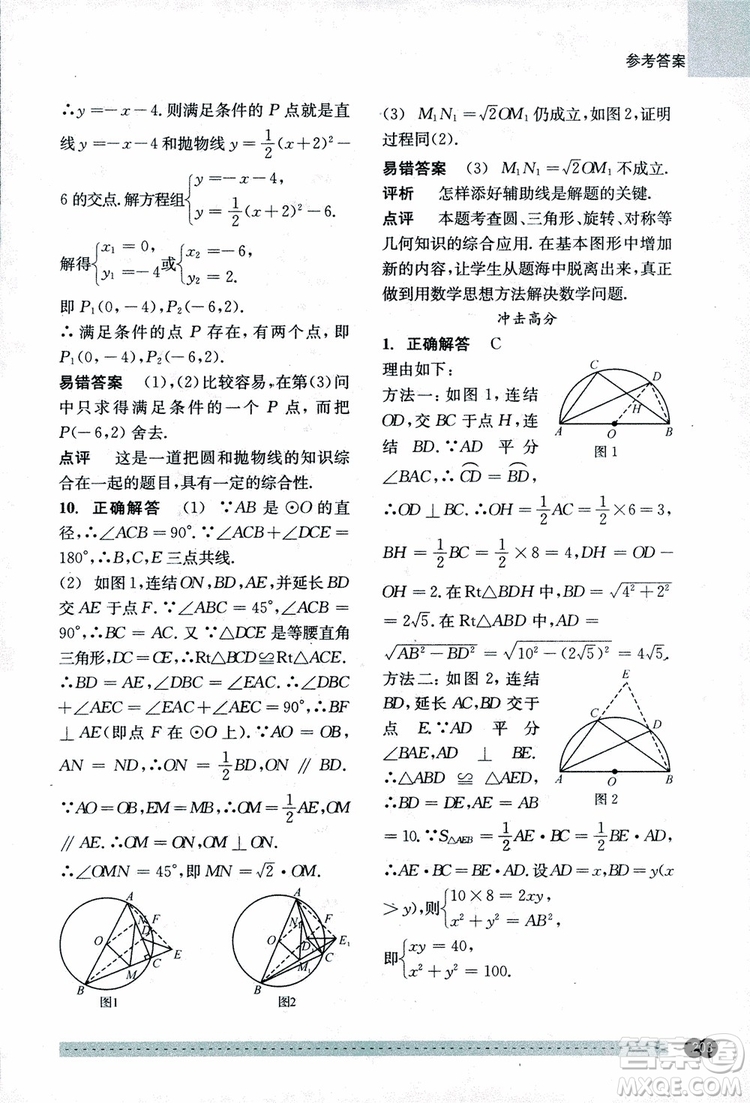 参考答案
∴y=-x-4.则满足条件的 P 点就是直
线 y=-x-4 和抛物线 y=1/2(x+2)²-
6 的交点.解方程组{y=-x-4,
y=1/2(x+2)²-6.
解得{x₁=0, y₁=-4 或{x₂=-6, y₂=2.
即 P₁(0,-4),P₂(-6,2).
∴ 满足条件的点 P 存在,有两个点,即
P₁(0,-4),P₂(-6,2).
易错答案 (1),(2)比较容易,在第(3)问
中只求得满足条件的一个 P 点,而把
P(-6,2)舍去.
点评 这是一道把圆和抛物线的知识综
合在一起的题目,具有一定的综合性.
10. 正确解答 (1) ∵AB 是 ⊙O 的直
径,∴∠ACB=90°.又∵∠ACB+∠DCE=
180°,∴B,C,E 三点共线.
(2) 如图 1,连结 ON,BD,AE,并延长 BD
交 AE 于点 F.∵∠ABC=45°,∠ACB=
90°,∴BC=AC.又∵△DCE 是等腰直角
三角形,DC=CE,∴Rt△BCD≌Rt△ACE.
∴BD=AE,∠DBC=∠EAC.∴∠DBC
+∠AEC=∠EAC+∠AEC=90°,∴BF
⊥AE(即点 F 在 ⊙O 上).∵AO=OB,
AN=ND,∴ON=1/2BD,ON∥BD.
∵AO=OB,EM=MB,∴OM=1/2AE,OM
∥AE.∴OM=ON,OM⊥ON.
∴∠OMN=45°,即 MN=√2·OM.
A
N
F
O
D
C
E
M
B
图1
A
N₁
F
O
D₁
E₁
C
M₁
B
图2
(3) M₁N₁=√2OM₁ 仍成立,如图 2,证明
过程同(2).
易错答案 (3) M₁N₁=√2OM₁ 不成立.
评析 怎样添好辅助线是解题的关键.
点评 本题考查圆、三角形、旋转、对称等
几何知识的综合应用.在基本图形中增加
新的内容,让学生从题海中脱离出来,真正
做到用数学思想方法解决数学问题.
冲击高分
1. 正确解答 C
理由如下:
方法一:如图 1,连结
OD,交 BC 于点 H,连
结 BD.∵AD 平分
∠BAC,∴CD=BD,
C
D
H
A
O
B
图1
∴OD⊥BC.∴OH=1/2AC=1/2×6=3,
BH=1/2BC=1/2×8=4,DH=OD-
OH=2.在 Rt△BDH 中,BD=√(4²+2²)
=2√5.在 Rt△ABD 中,AD=
√(AB²-BD²)=√(10²-(2√5)²)=4√5.
方法二:如图 2,连结
BD,延长 AC,BD 交于
点 E.∵AD 平分
∠BAE,AD⊥BE.
∴△ABD≌△AED,
∴BD=DE,AE=AB
E
C
D
A
O
B
图2
=10.∵S△AEB=1/2AE·BC=1/2BE·AD,
∴AE·BC=BE·AD.设 AD=x,BD=y(x
>y),则{10×8=2xy,
x²+y²=AB²,
即{xy=40,
x²+y²=100.
MXQE.COM